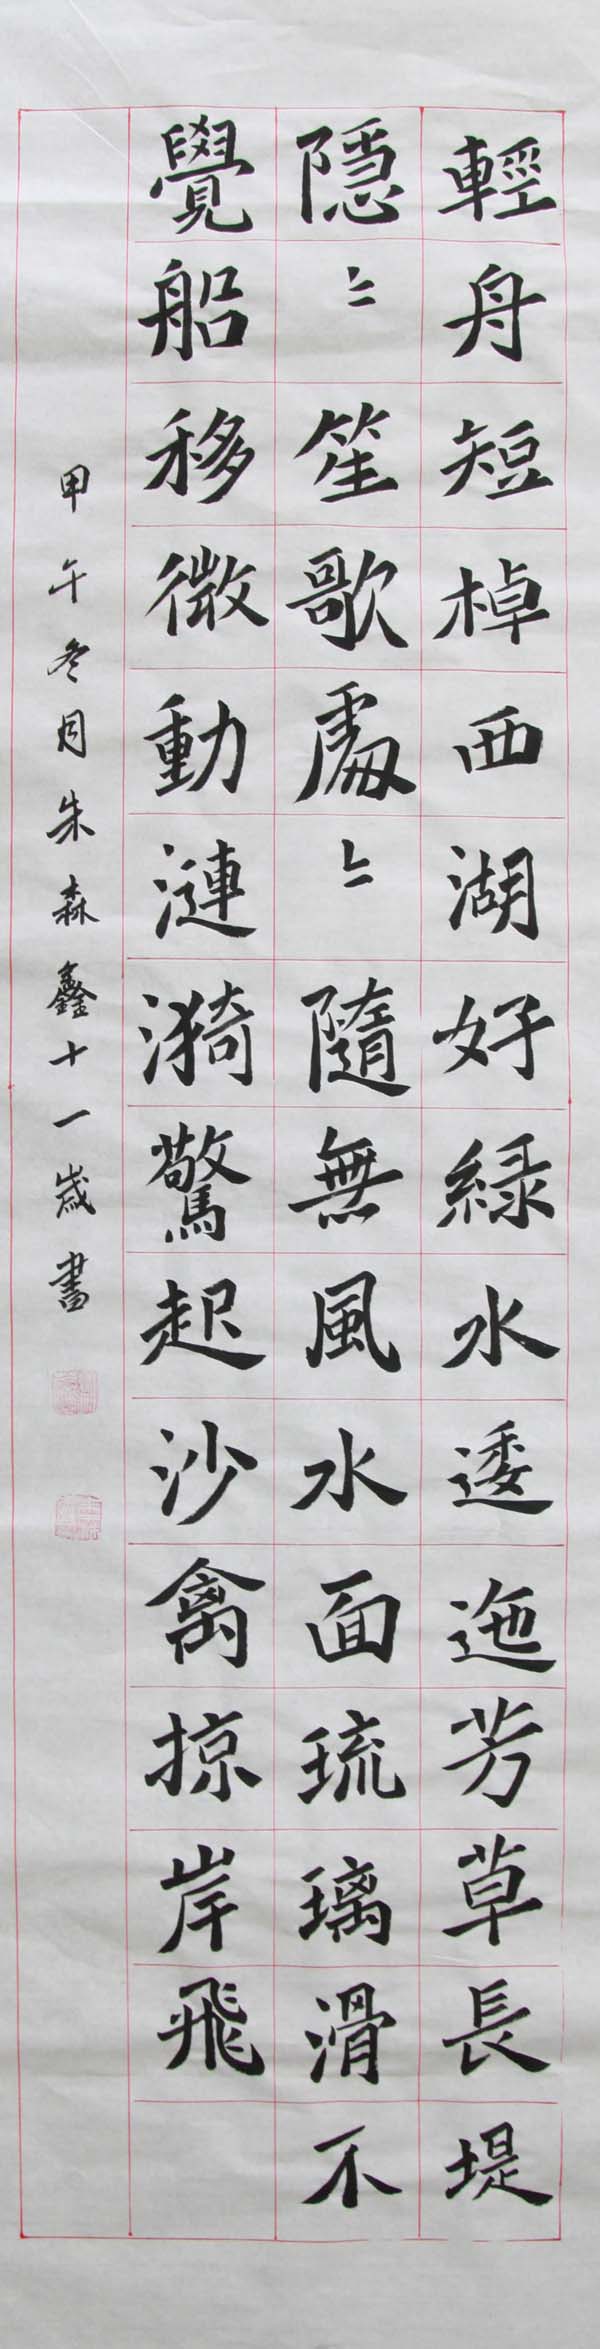 輕舟短棹西湖好綠水逶迤芳草長堤
隱〻笙歌處〻隨無風水面琉璃滑不
覺船移微動漣漪驚起沙禽掠岸飛
甲午冬月朱森鑫十一歲書